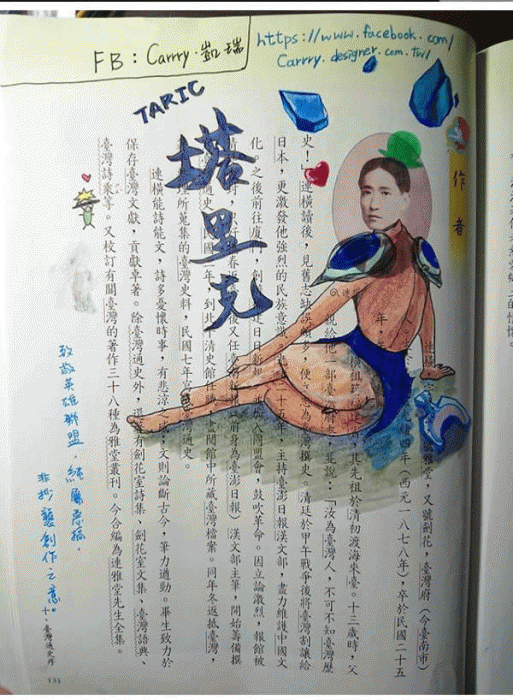 FB：Carrry.凱瑞
https://www.facebook.com/
Carrry.designer.com.tw/
TARIC
塔里克
作者
雅堂，又號劍花，臺灣府（今臺南市）
四年（西元一八七八年），卒於民國二十五
年，其先祖於清初渡海來臺。十三歲時，父
親給他一部臺並說：「汝為臺灣人，不可不知臺灣歷
史！」連橫讀後，見舊志缺誤，為臺灣撰史。清廷於甲午戰爭後將臺灣割讓給
日本，更激發他強烈的民族意識。主持臺澎日報漢文部，盡力維護中國文
化。之後前往廈門，創入同盟會，鼓吹革命。因立論激烈，報館被
時，春返又任臺前身為臺澎日報）漢文部主筆，開始籌備撰
通史。民國年，到北清史館任職，盡閱館中所藏臺灣檔案。同年冬返抵臺灣，
所蒐集的臺灣史料，民國七年寫通史。
連橫能詩能文，詩多憂懷時事，有悲涼之；文則論斷古今，筆力遒勁。畢生致力於
保存臺灣文獻，貢獻卓著。除臺灣通史外，還有劍花室詩集、劍花室文集、臺灣語典、
臺灣詩乘等。又校訂有關臺灣的著作三十八種為雅堂叢刊。今合編為連雅堂先生全集。
致敬英雄聯盟，純屬惡搞，
非抄襲創作之意。
十、臺灣通史序